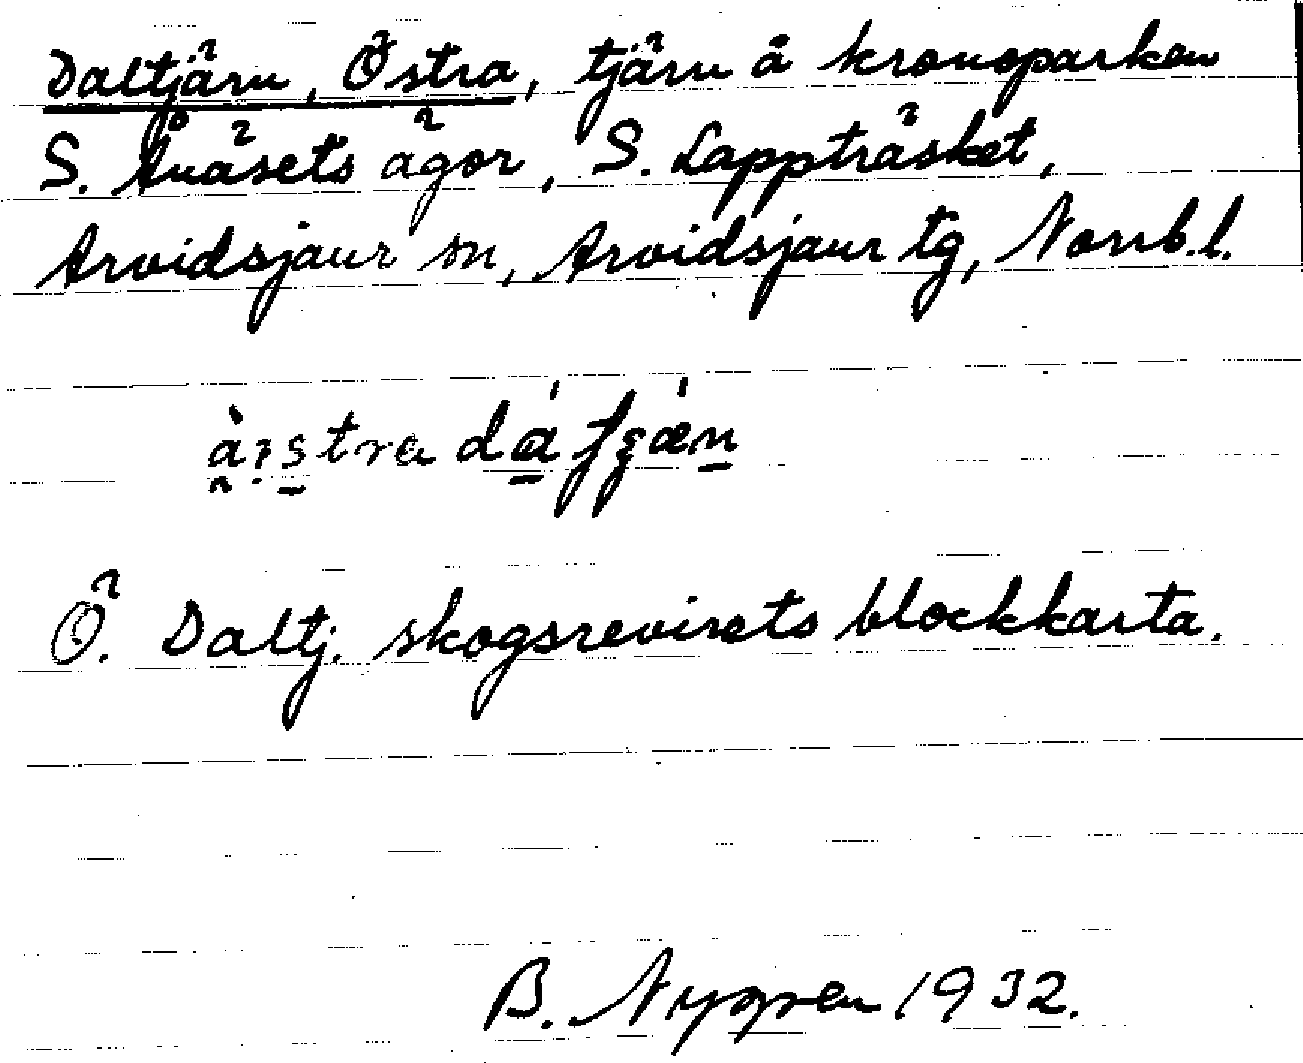 Daltjärn, Östra, tjärn å kronoparken
S. Ånäsets ägor, S. Lappträsket,
Arvidsjaur sn, Arvidsjaur tg, Norrb.l.
Ö. Daltj. skogsrevirets blockkarta.
B. Nygren 1932.